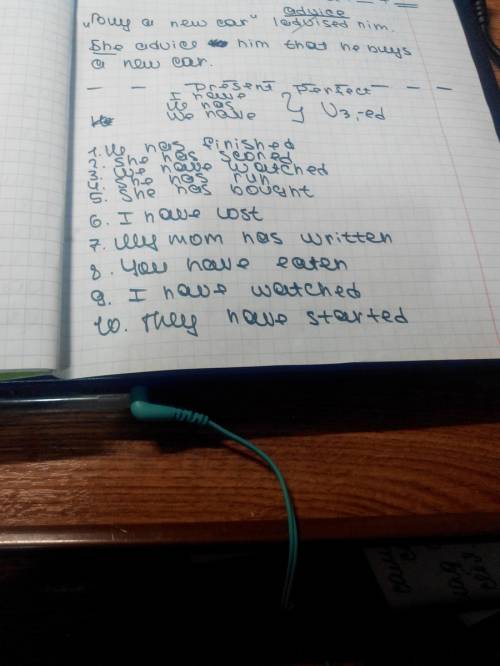 advice
„Buy a new car“ I advised him.
She advice him that he buys
a new car.
present perfect
I have
He has
We have } V3,-ed
1. He has finished
2. She has scored
3. We have watched
4. She has run
5. She has bought
6. I have lost
7. My mom has written
8. You have eaten
9. I have watched
10. They have started